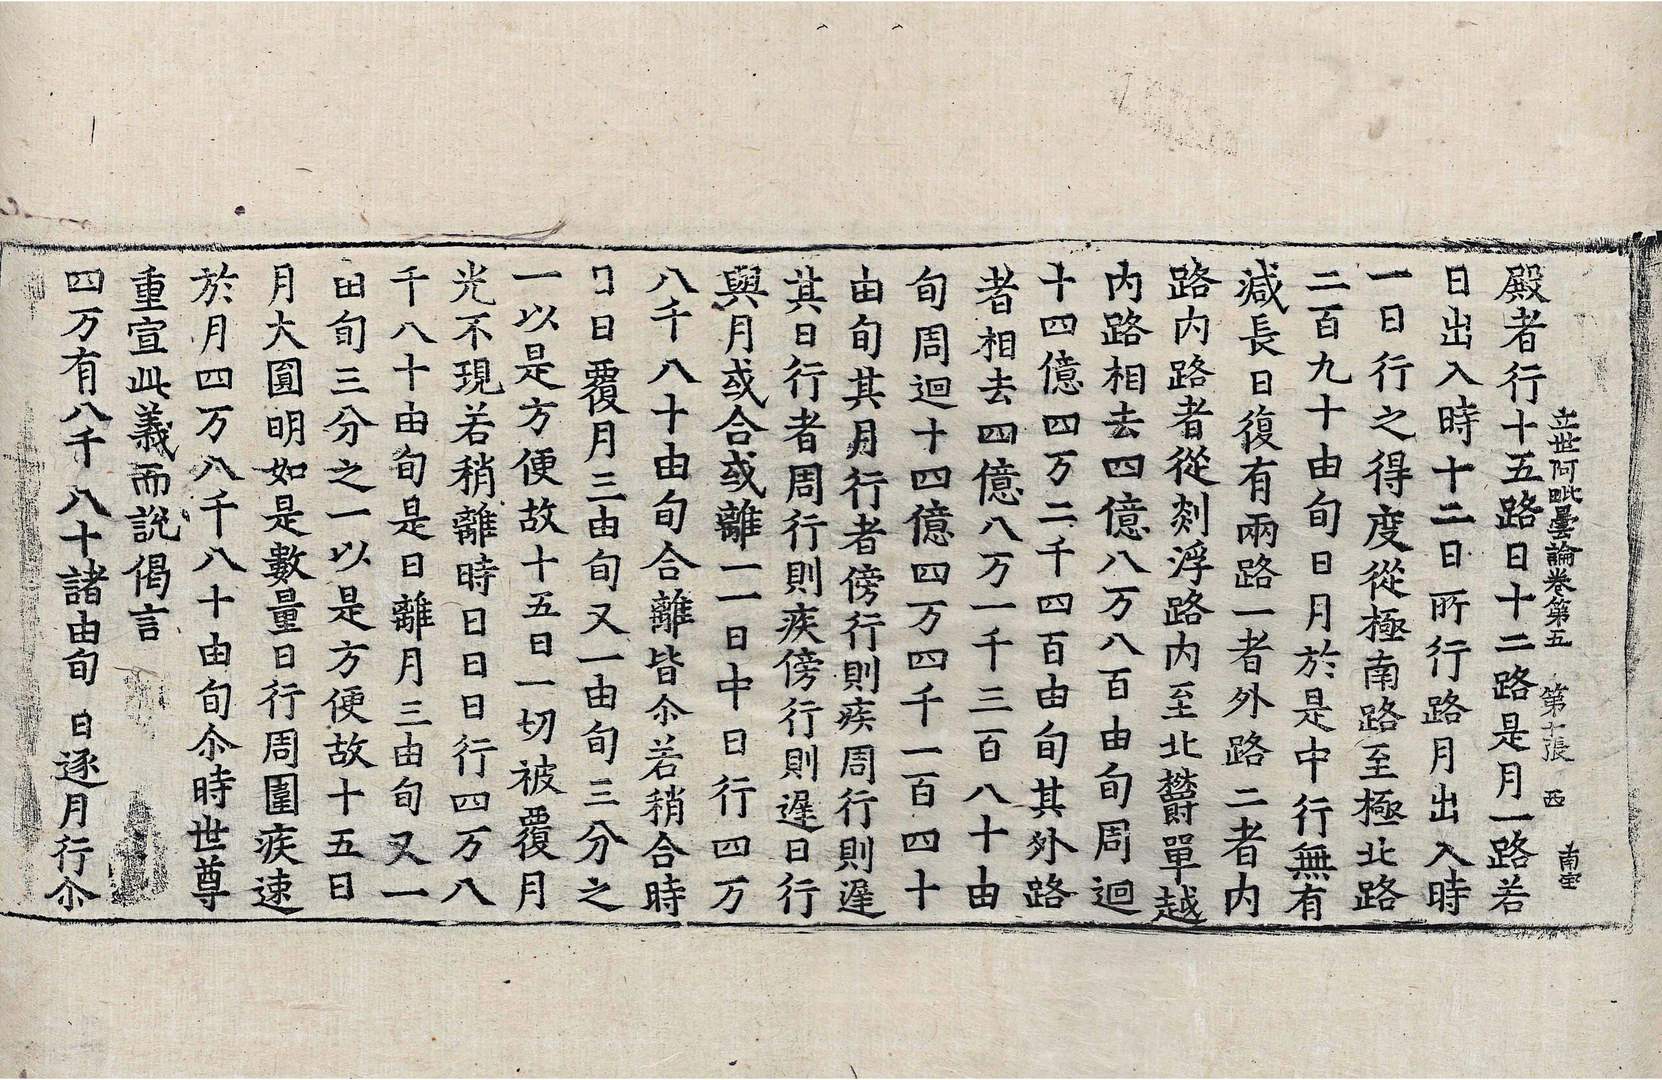 立世阿毗曇論卷第五 第十張 西
殿者行十五路日十二路是月一路若
日出入時十二日所行路月出入時
一日行之得度從極南路至極北路
二百九十由旬日月於是中行無有
減長日復有兩路一者外路二者內
路內路者從剡浮路內至北欝單越
內路相去四億八万八百由旬周迴
十四億四万二千四百由旬其外路
者相去四億八万一千三百八十由
旬周迴十四億四万四千一百四十
由旬其月行者傍行則疾周行則遲
其日行者周行則疾傍行則遲日行
與月或合或離一一日中日行四万
八千八十由旬合離皆尒若稍合時
日日覆月三由旬又一由旬三分之
一以是方便故十五日一切被覆月
光不現若稍離時日日日行四万八
千八十由旬是日離月三由旬又一
由旬三分之一以是方便故十五日
月大圓明如是數量日行周圍疾速
於月四万八千八十由旬尒時世尊
重宣此義而說偈言
四万有八千 八十諸由旬 日逐月行尒